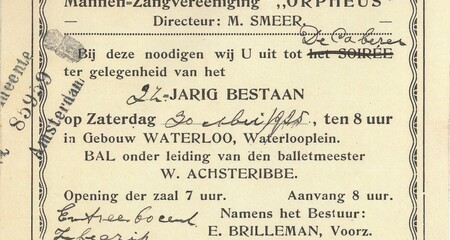 Mannen-Zangvereeniging „ORPHEUS"
Directeur: M. SMEER.
Bij deze noodigen wij U uit tot het SOIRÉE
ter gelegenheid van het
22-JARIG BESTAAN
op Zaterdag 30 Mei 1925, ten 8 uur
in Gebouw WATERLOO, Waterlooplein.
BAL onder leiding van den balletmeester
W. ACHSTERIBBE.
Opening der zaal 7 uur. Aanvang 8 uur.
Namens het Bestuur:
E. BRILLEMAN, Voorz.
Gemeente
Amsterdam